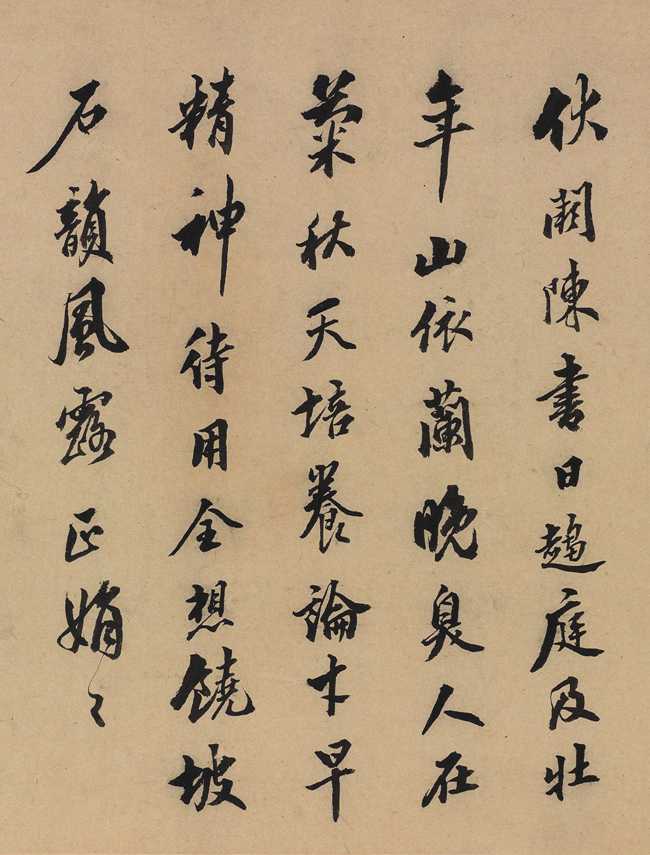 伏闕陳書日趨庭及壯
年山依蘭晚臭人在
菊秋天培養論才早
精神待用全想饒坡
石韻風露正娟〻